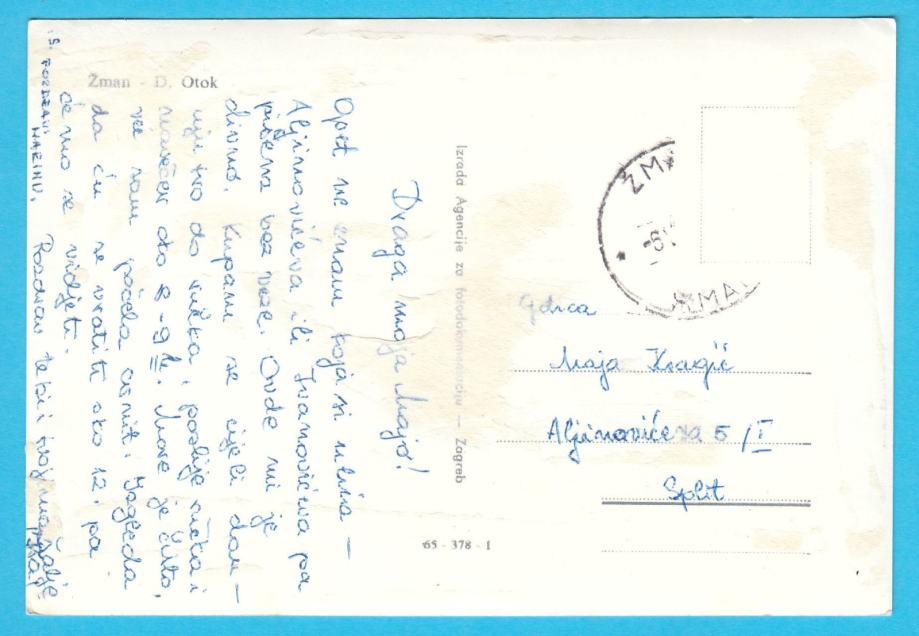 Žman - D. Otok
Draga moja Majo!
Opet ne znam koja si ulica –
Aljinovićeva ili Ivanovićeva pa
pišem bez veze. Ovdje mi je
divno. Kupam se cijeli dan –
ujutro do ručka i poslije ručka i
navečer do 8-9 h. More je čisto,
već sam počela crnit. Izgleda
da ću se vratiti oko 12. pa
ćemo se vidjeti.
Pozdrav tebi i tvojima šalje
POZDRAVI
MARINU.
Izrada Agencije za fotodokumentaciju — Zagreb
65 - 378 - 1
ŽMA
-6.
ŽMAN
Gđica
Maja Kragić
Aljinovićeva 5/I
Split